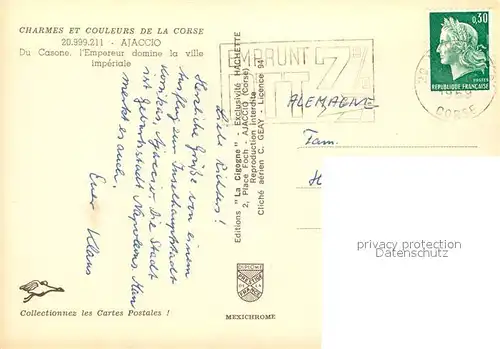 CHARMES ET COULEURS DE LA CORSE
20.999.211 - AJACCIO
Du Casone, l'Empereur domine la ville
impériale
Liebe Richters!
Herzliche Grüße von einem
Ausflug zur Inselhauptstadt
Korsikas, Ajaccio. Die Stadt
ist Geburtsstadt Napoleons. Man
merkt es auch.
Euer Klaus
Collectionnez les Cartes Postales !
Editions "La Cigogne" - Exclusivité HACHETTE
2, Place Foch - AJACCIO (Corse)
Reproduction interdite
Cliché aérien C. GEAY - Licence 94
DIPLOME
PRESTIGE
FRANCE
MEXICHROME
EMPRUNT
PTT
0,30
POSTES
REPUBLIQUE FRANÇAISE
CORSE
ALEMAGNE
Fam.
H
privacy protection
Datenschutz